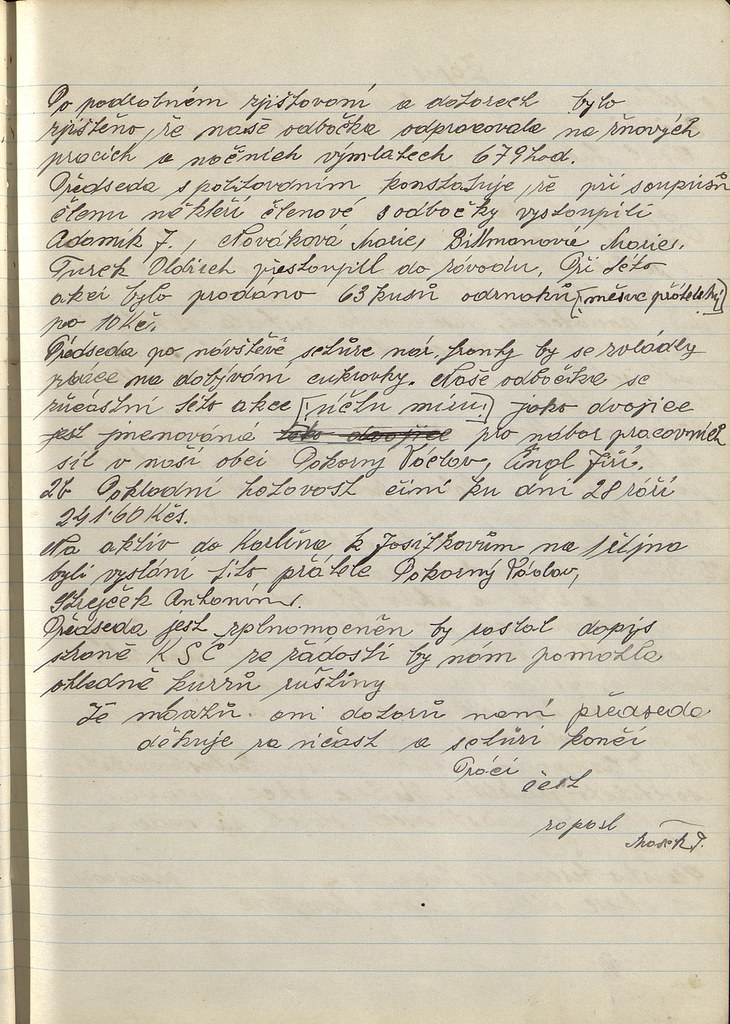 Po podrobném zjišťovaní a dotazech bylo
zjištěno, že naše odbočka odpracovala na žňových
pracích a nočních výmlatech 679 hod.
Předseda s politovaním konstatuje, že při soupisu
členu někteří členové s odbočky vystoupili
Adamík J., Nováková Marie, Marie,
Turek Oldřich přestoupill do závodu. Při této
akci bylo prodáno 63 kusů odznaků [měsíce přátelství]
po 10 Kčs.
Předseda po návštěvě schůze nár. fronty by se zvládly
práce na dobývání cukrovky. Naše odbočka se
zůčastní této akce [účtu míru] jako dvojice
jest jmenováná jako dvojice pro nábor pracovních
sil v naší obci Pokorný Václav, Čingl Jiří.
Pokladní hotovost činí ku dni 28 září
241.60 Kčs.
Na aktiv do Karlína k Josífkovům na října
byli vysláni tito přátelé Pokorný Václav,
Antonín.
Předseda jest zplnomocněn by zaslal dopis
straně KSČ ze žádostí by nám pomohla
ohledně kurzů ruštiny
Je návrhů ani dotazů není předseda
děkuje za účast a schůzi končí
Práci
čest
zapsal
Mašek J.